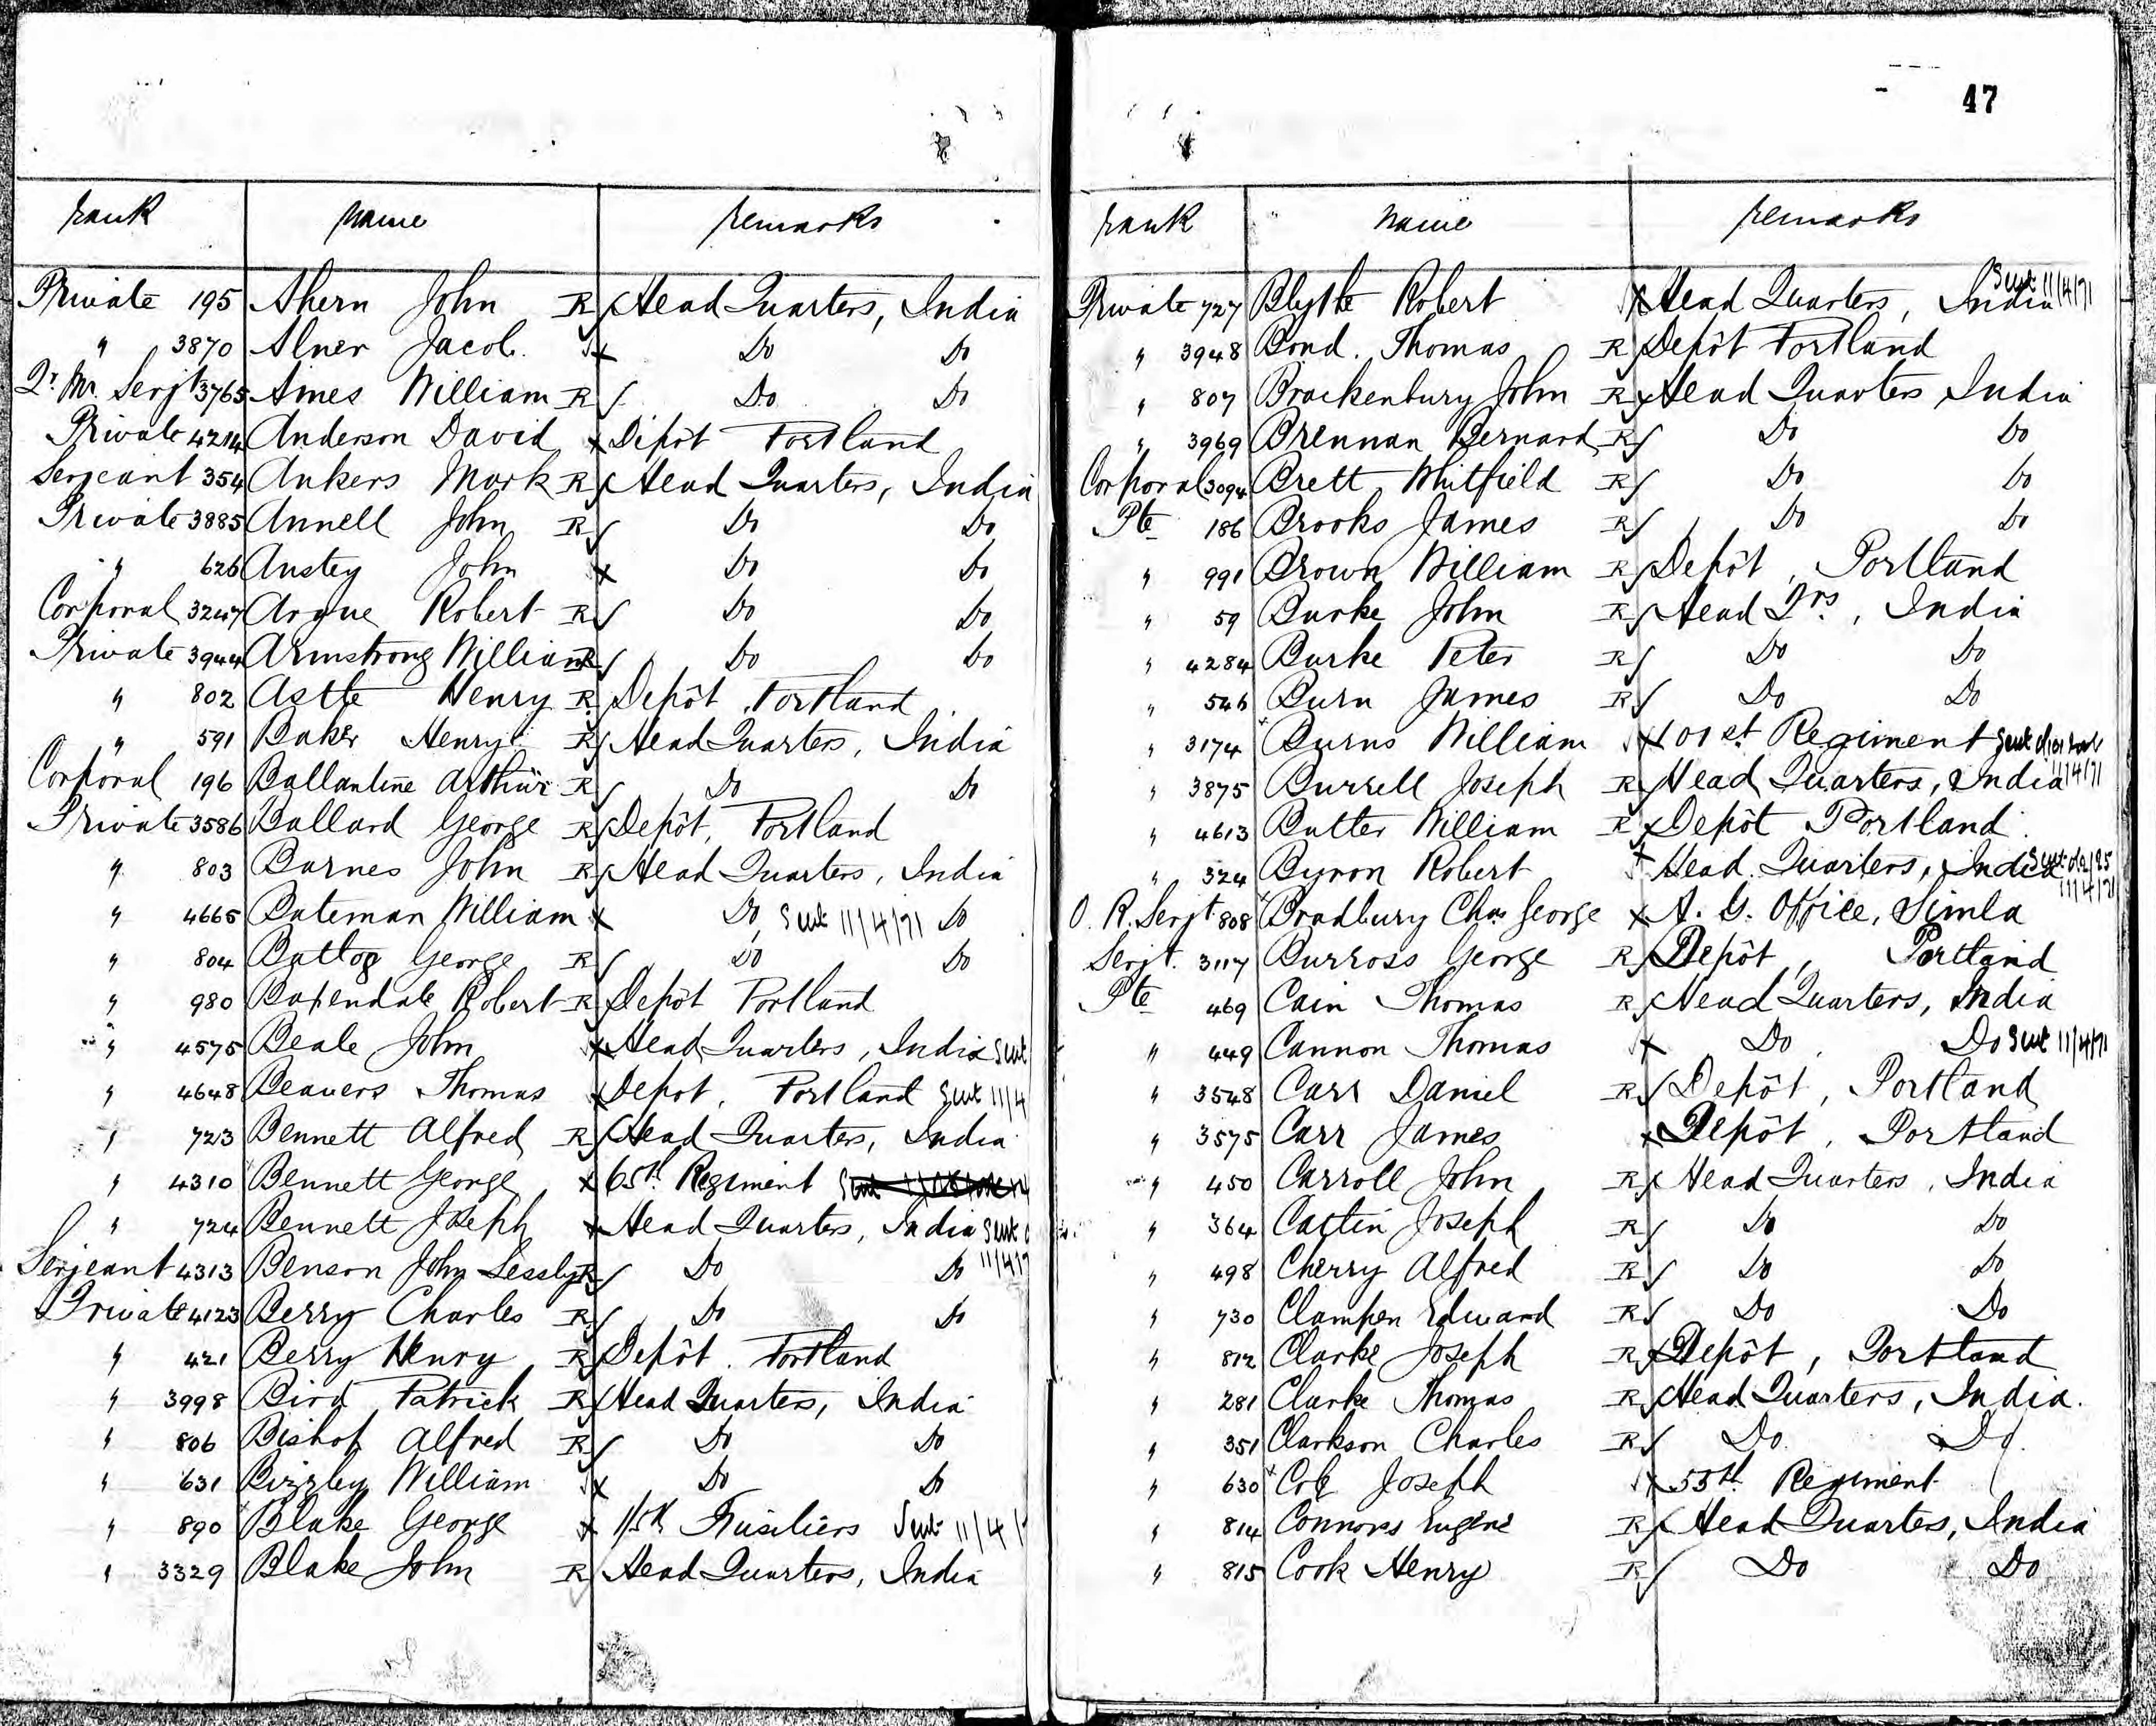 47
Rank Name Remarks
Private 195 Ahern John R Head Quarters, India
" 3870 Alner Jacob x Do Do
Qr. Mr. Serjt 3765 Ames William R Do Do
Private 4214 Anderson David x Dépôt Portland
Serjeant 354 Ankers Mark R Head Quarters, India
Private 3885 Annell John R Do Do
" 626 Anstey John x Do Do
Corporal 3247 Argue Robert R Do Do
Private 3944 Armstrong William R Do Do
" 802 Astle Henry R Depôt Portland
" 591 Baker Henry R Head Quarters, India
Corporal 196 Ballantine Arthur R Do Do
Private 3586 Ballard George R Depôt, Portland
" 803 Barnes John R Head Quarters, India
" 4665 Bateman William x Do Sent 11/4/71 Do
" 804 George R Do Do
" 980 Baxendale Robert R Depôt Portland
" 4575 Beale John x Head Quarters, India Sent
" 4648 Beavers Thomas x Depot, Portland Sent 11/4
" 723 Bennett Alfred R Head Quarters, India
" 4310 Bennett George x 65th Regiment
" 724 Bennett Joseph x Head Quarters, India Sent
11/4/7
Serjeant 4313 Benson John Lessly R Do Do
Private 4123 Berry Charles R Do Do
" 421 Berry Henry R Depôt. Portland
" 3998 Bird Patrick R Head Quarters, India
" 806 Bishop Alfred R Do Do
" 631 Bizzley William x Do Do
" 890 Blake George x 1/5th Fusiliers Sent 11/4/
" 3329 Blake John R Head Quarters, India
Rank Name Remarks
Private 727 Blythe Robert x Head Quarters, India Sent 11/4/71
" 3948 Bond. Thomas R Depôt Portland
" 807 Brackenbury John R Head Quarters India
" 3969 Brennan Bernard R Do Do
Corporal 3094 Brett Whitfield R Do Do
Pte 186 Brooks James R Do Do
" 991 Brown William R Depôt, Portland
" 59 Burke John R Head Qrs, India
" 4284 Burke Peter R Do Do
" 546 Burn James R Do Do
" 3174 Burns William x 101st Regiment Sent
11/4/71
" 3875 Burrell Joseph R Head Quarters, India
" 4613 Butter William R Depôt Portland
" 324 Byron Robert x Head Quarters, India Sent
11/4/71
O. R. Serjt 808 Bradbury Chas George x A. G. Office, Simla
Serjt. 3117 Burross George R Depôt, Portland
Pte 469 Cain Thomas R Head Quarters, India
" 449 Cannon Thomas x Do Do Sent 11/4/71
" 3548 Carr Daniel R Depôt, Portland
" 3575 Carr James x Depôt, Portland
" 450 Carroll John R Head Quarters, India
" 364 Joseph R Do Do
" 498 Cherry Alfred R Do Do
" 730 Clampen Edward R Do Do
" 812 Clarke Joseph R Depôt, Portland
" 281 Clarke Thomas R Head Quarters, India.
" 351 Clarkson Charles R Do Do
" 630 Joseph x 55th Regiment
" 814 Connors Eugene R Head Quarters, India
" 815 Cook Henry R Do Do